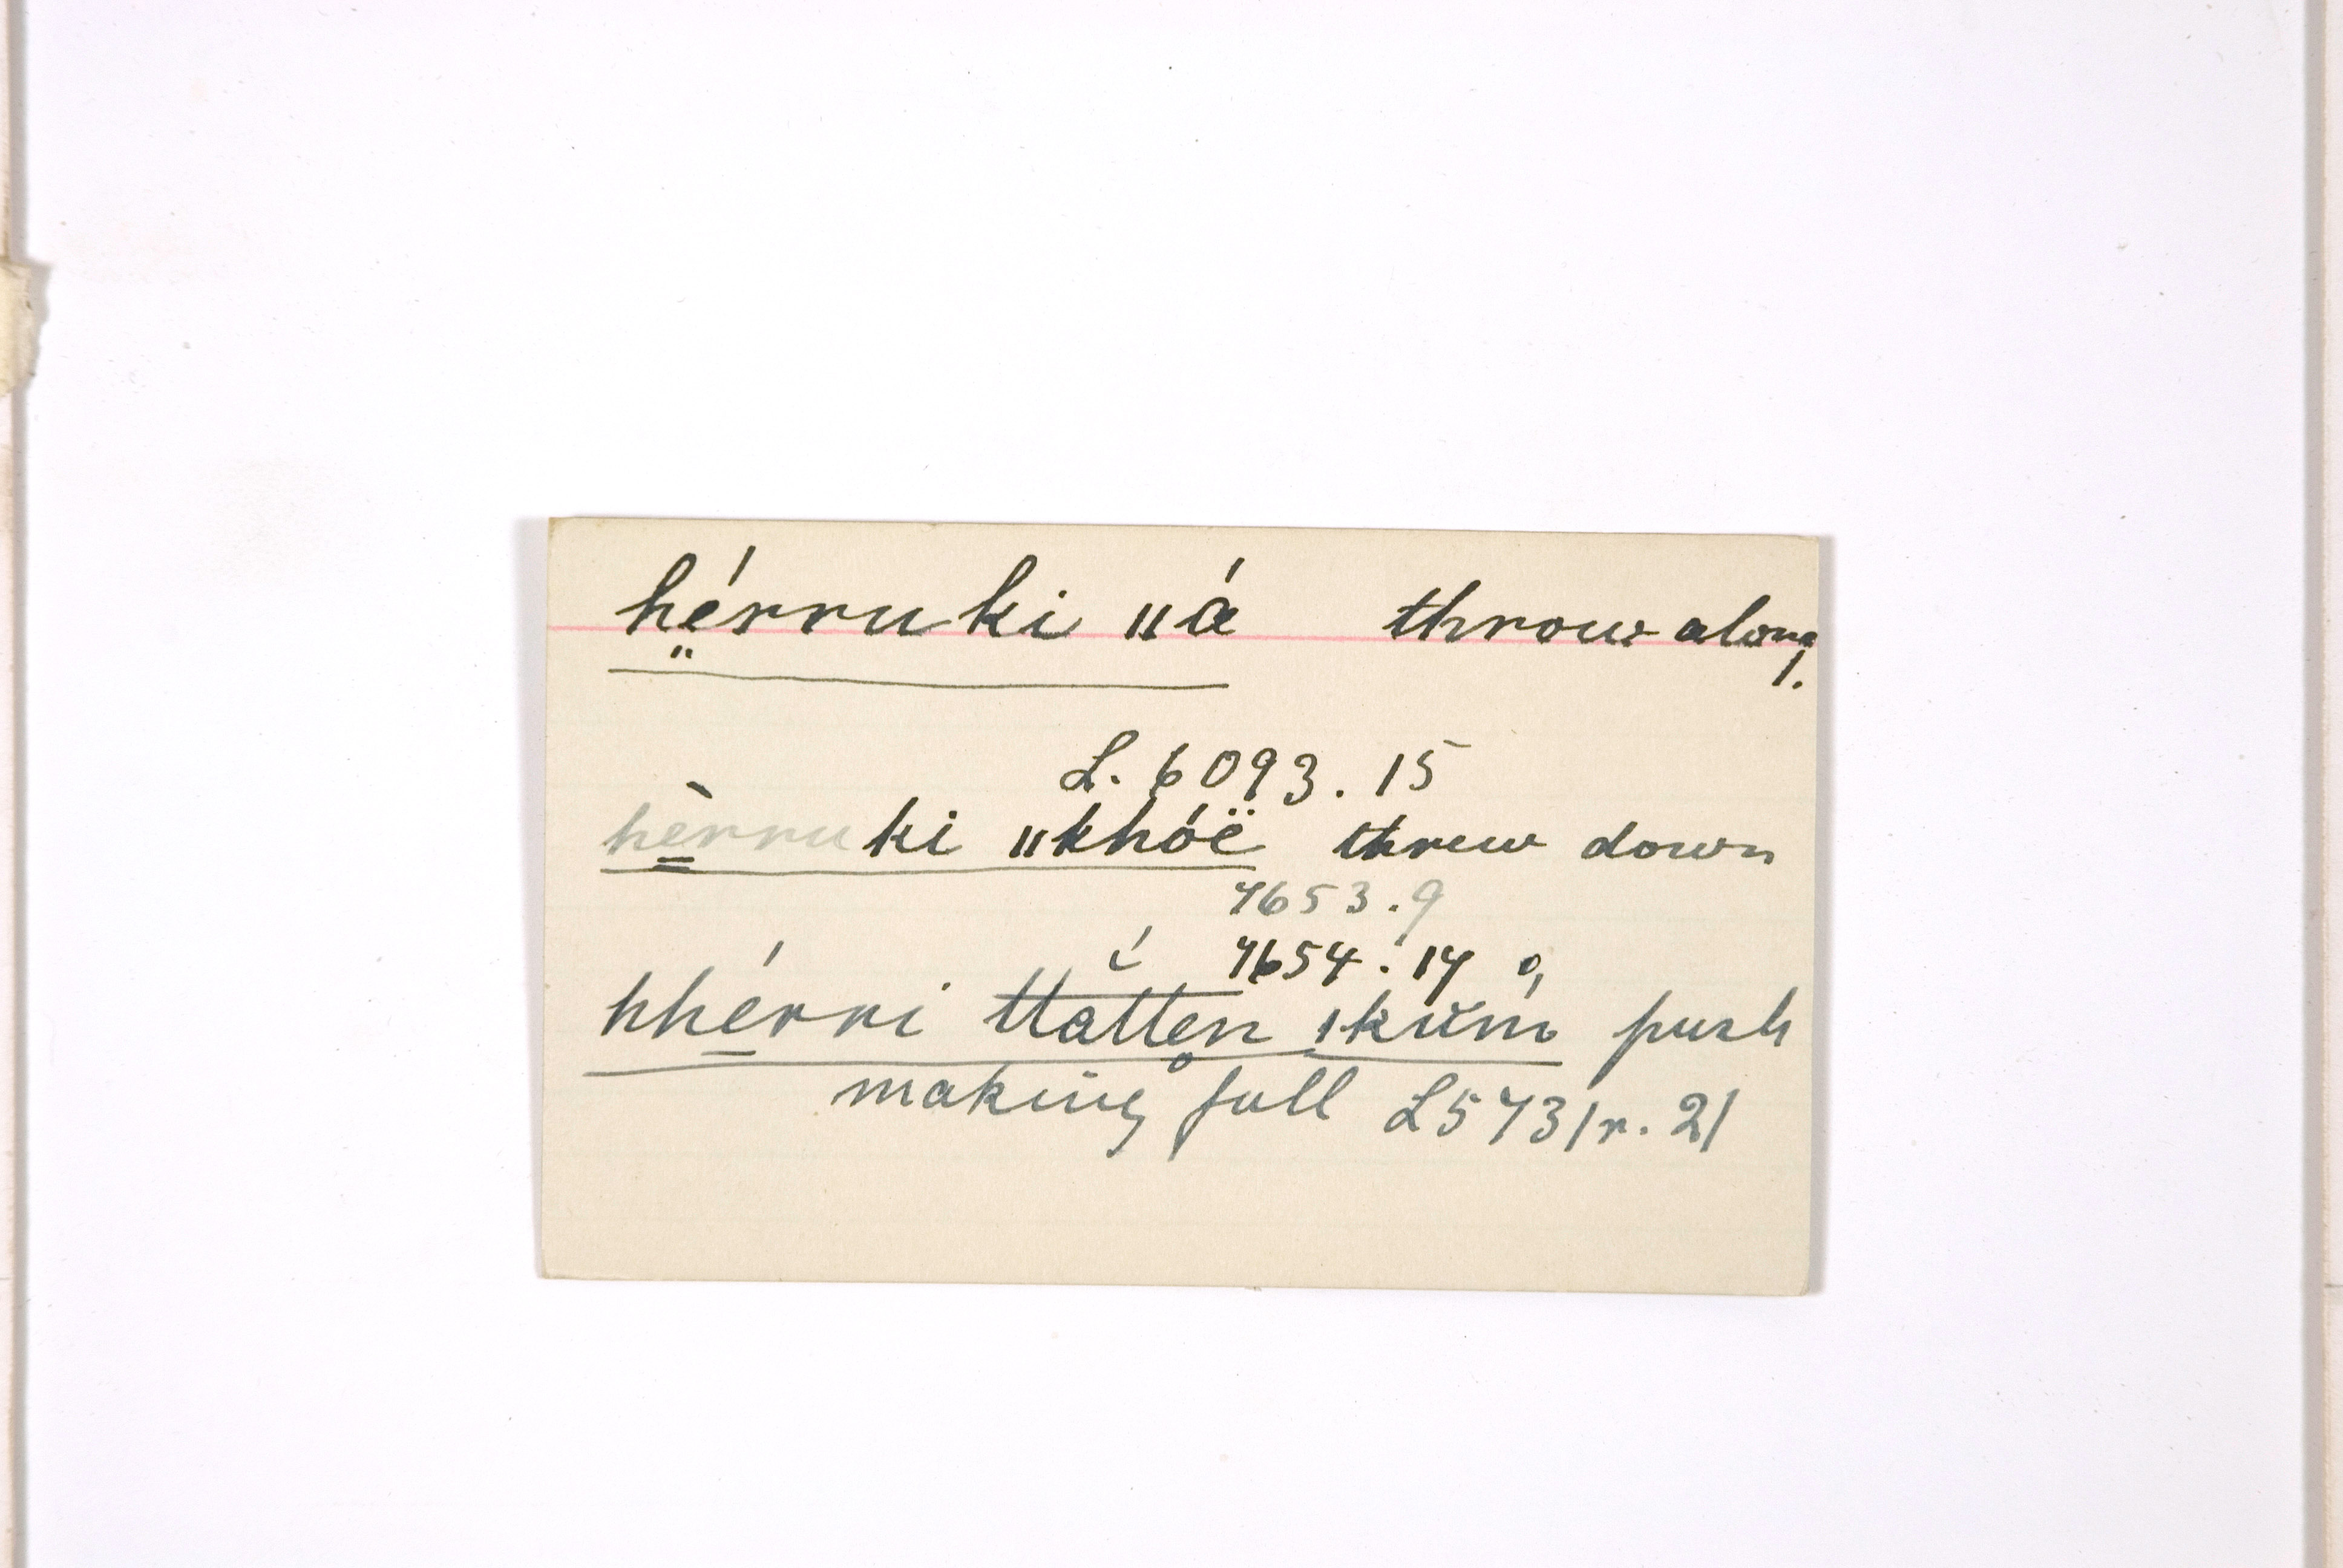 hé̤rruki ǁá throw along
1.
L. 6093.15
hè̳rruki ǁkhóë threw down
7653.9
7654.14
hhé̱rri ttatten̥ ǀkŭḿ push
making full L5731r. 21